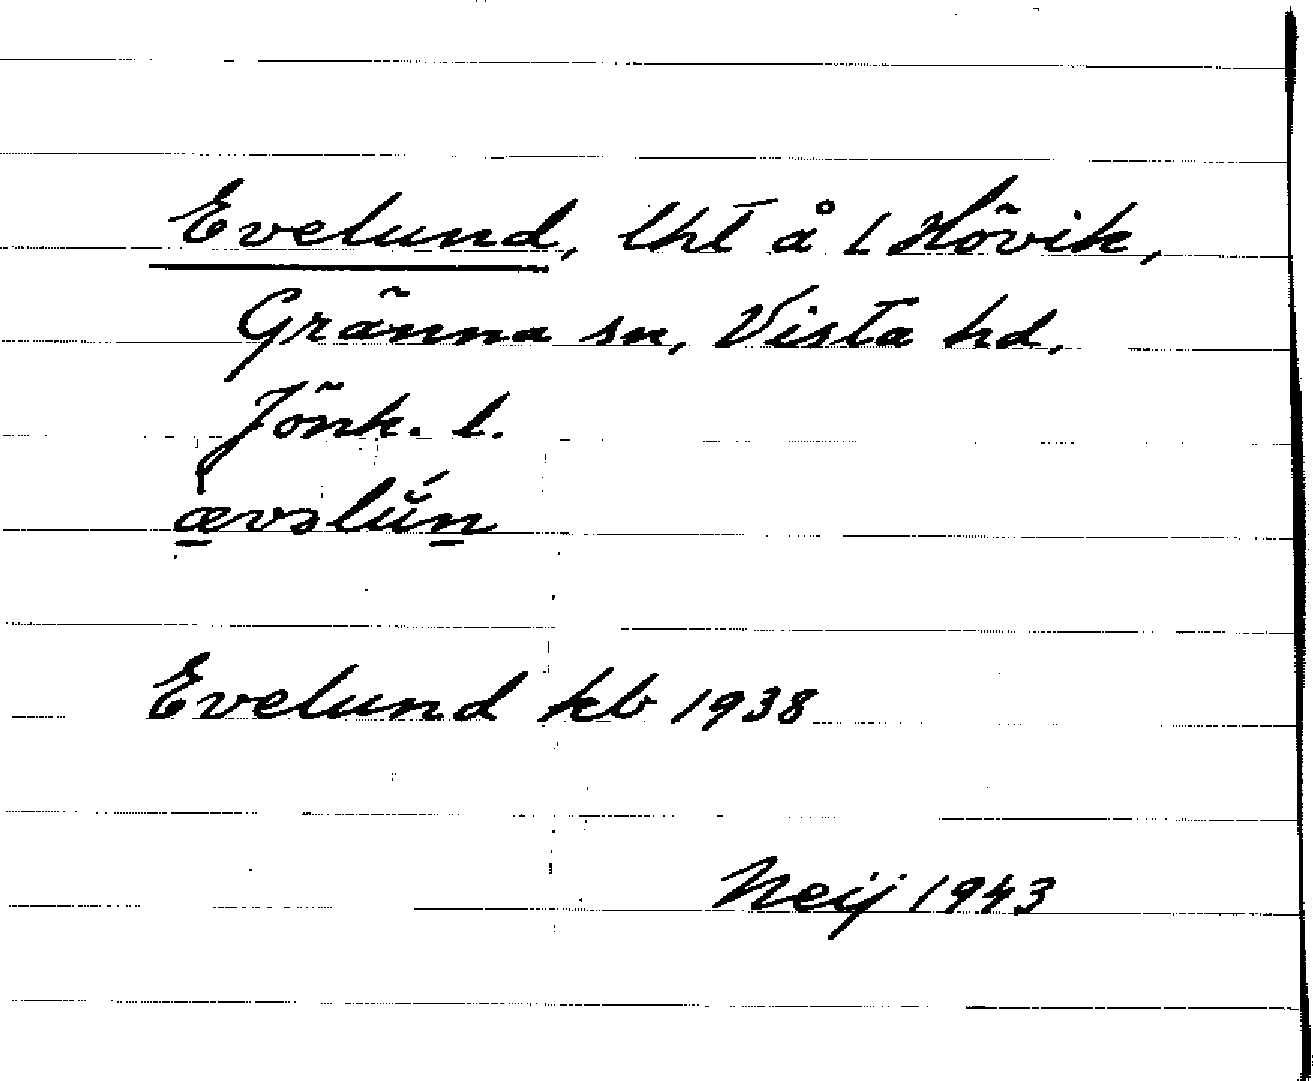 Evelund, lht å 1 Hövik,
Gränna sn, Vista hd.
Jönk. l.
ævəlŭ́n
Evelund kb 1938
Neij 1943